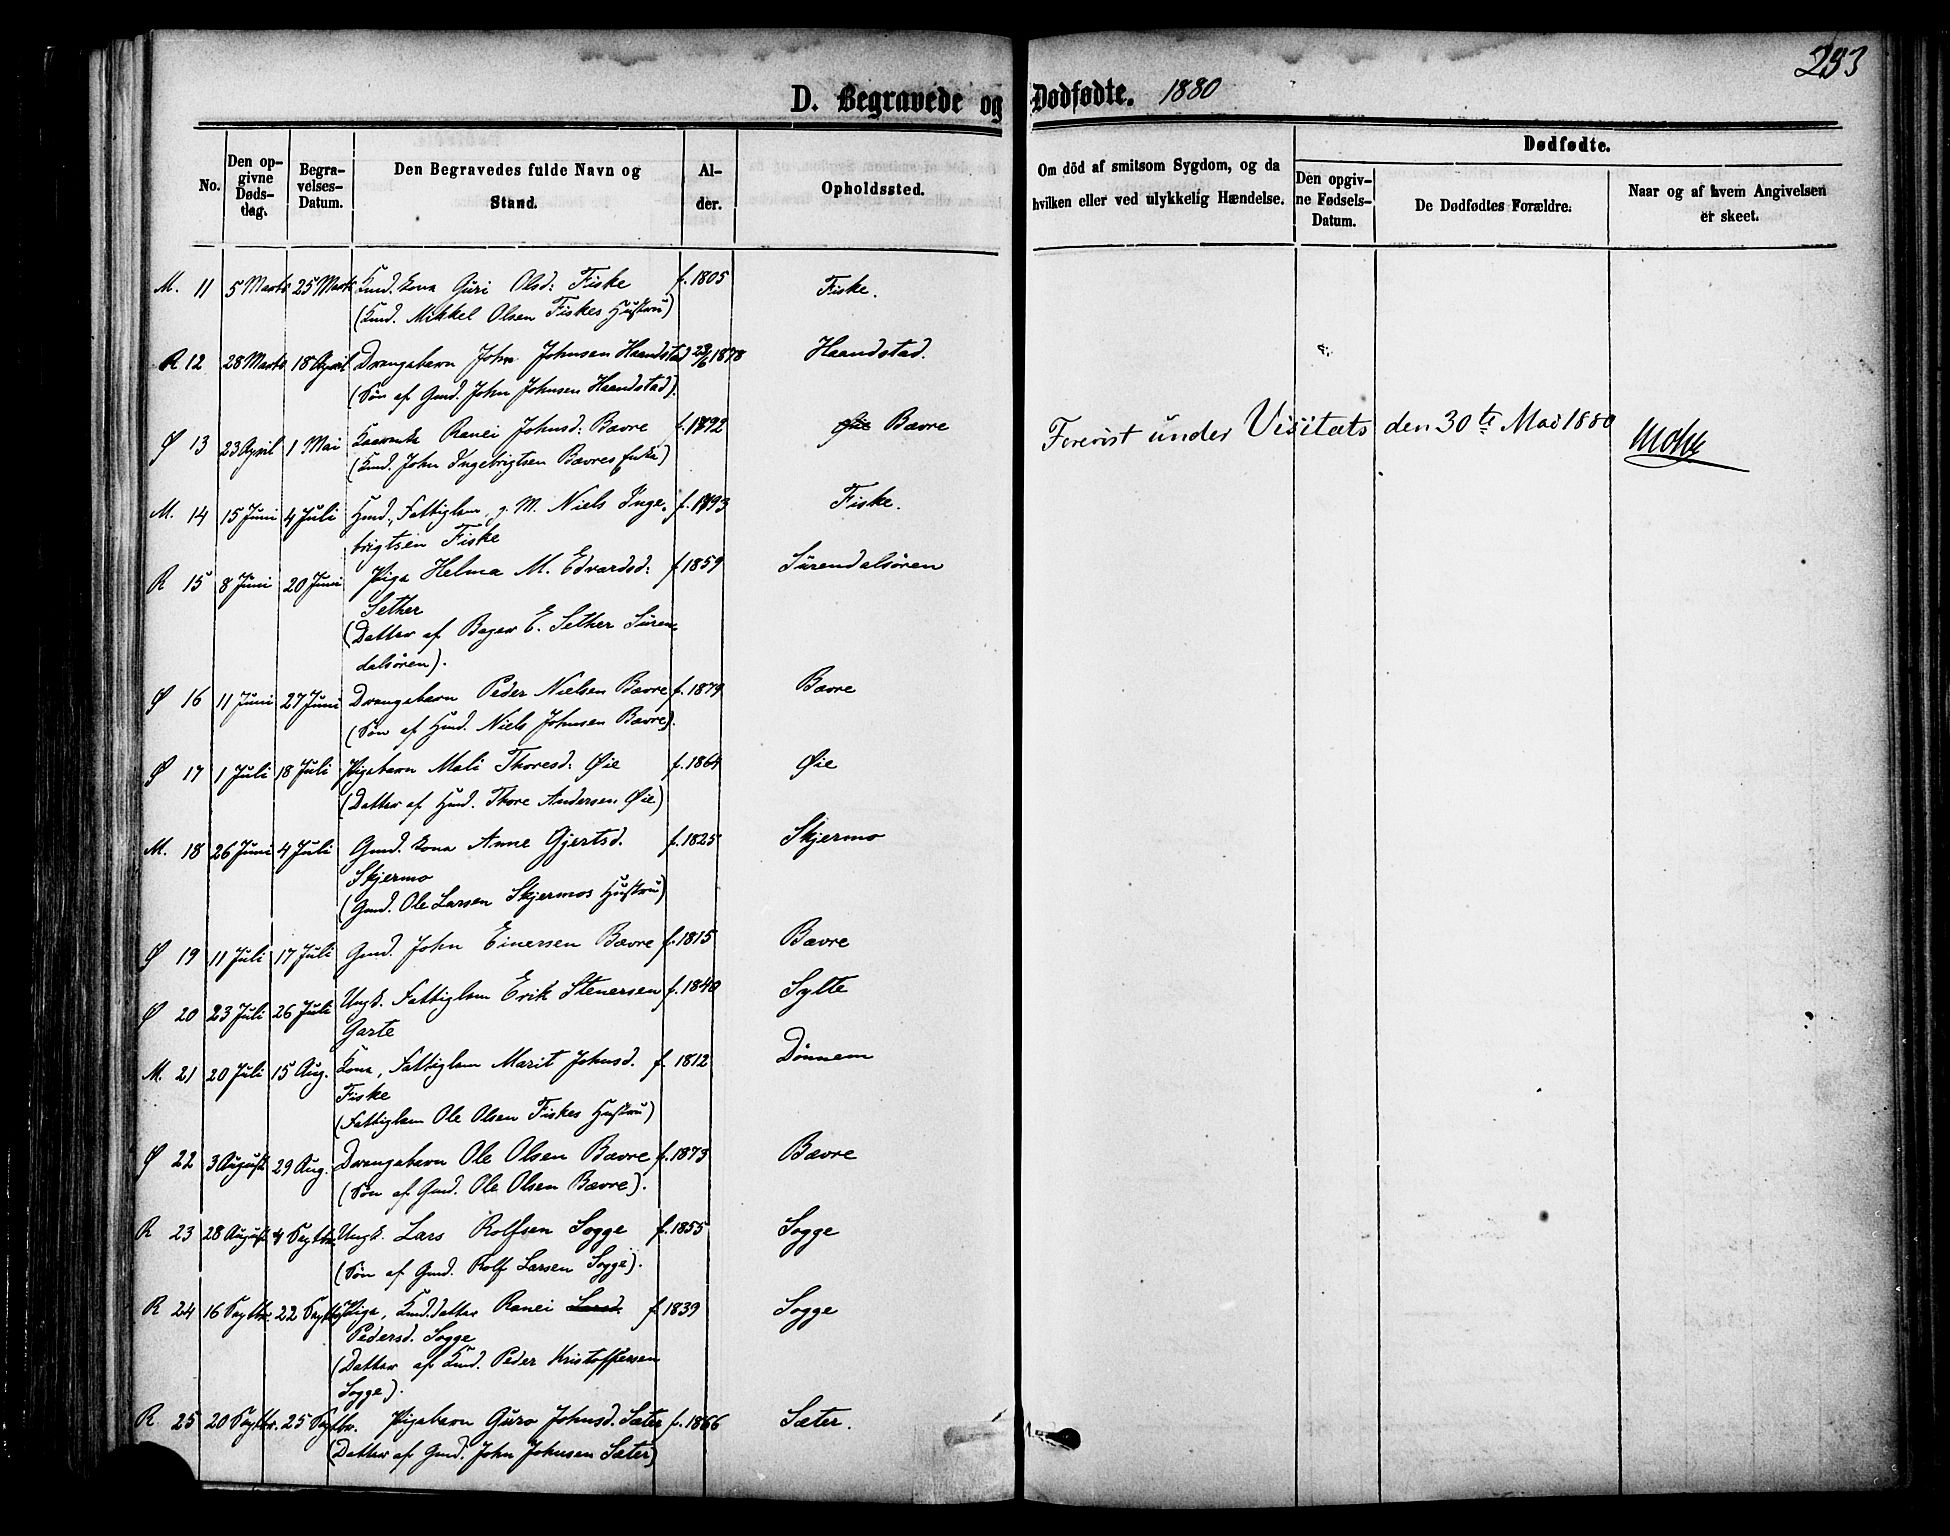 293
D. Begravede og Dødfødte. 1880
No.
Den opgivne Dødsdag.
Begravelses-Datum.
Den Begravedes fulde Navn og Stand.
Alder.
Opholdssted.
Om död af smitsom Sygdom, og da hvilken eller ved ulykkelig Hændelse.
Dødfødte.
Den opgivne Fødsels-Datum.
De Dødfødtes Forældre.
Naar og af hvem Angivelsen er skeet.
M. 11 5 Marts 25 Marts Kmd. kona Guri Olsd: Fiske f. 1805 Fiske.
(Kmd. Mikkel Olsen Fiskes Hustru)
R 12 28 Marts 18 April Drengebarn John Johnsen Haandstad 1878 Haandstad.
(Søn af Gmd. John Johnsen Haandstad).
Ø 13 23 April 1 Mai Kaarenke Ranei Johnsd: Bævre f. 1792 Øie Bævre
(Kmd. John Ingebrigtsen Bævres Enke)
Forevist under Visitats den 30te Mai 1880
M. 14 15 Juni 4 Juli Hmd., Fattiglem, g. M. Niels Inge- f. 1793 Fiske.
brigtsen Fiske
R 15 8 Juni 20 Juni Pige Helma M. Edvardsd: f. 1859 Surendalsören
Sether
(Datter af Bager E. Sether Suren-
dalsören).
Ø 16 11 Juni 27 Juni Drengebarn Peder Nielsen Bævre f. 1879 Bævre
(Søn af Hmd. Niels Johnsen Bævre).
Ø 17 1 Juli 18 Juli Pigebarn Mali Thoresd: Øie f. 1864 Øie
(Datter af Hmd. Thore Andersen Øie)
M. 18 26 Juni 4 Juli Gmd. kona Anne Gjertsd. f. 1825 Skjermo
Skjermo
(Gmd. Ole Larsen Skjermos Hustru)
Ø 19 11 Juli 17 Juli Gmd. John Einersen Bævre f. 1815 Bævre
Ø 20 23 Juli 26 Juli Ungk. Fattiglem Erik Stenersen f. 1840 Sylte
Garte
M. 21 20 Juli 15 Aug. Kona, Fattiglem Marit Johnsd. f. 1812 Dönnem
Fiske
(Fattiglem Ole Olsen Fiskes Hustru)
Ø 22 3 August 29 Aug. Drengebarn Ole Olsen Bævre f. 1873 Bævre
(Søn af Gmd. Ole Olsen Bævre).
R 23 28 August 4 Septbr. Ungk. Lars Rolfsen Sogge f. 1855 Sogge
(Søn af Gmd. Rolf Larsen Sogge).
R 24 16 Septbr. 22 Septbr. Pige, Kmd. datter Ranei Larsd. f. 1839 Sogge
Pedersd. Sogge
(Datter af Kmd. Peder Kristoffersen
Sogge).
R 25 20 Septbr. 25 Septbr. Pigebarn Guro Johnsd. Sæter f. 1866 Sæter.
(Datter af Gmd. John Johnsen Sæter)